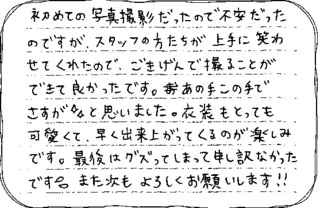 初めての写真撮影だったので不安だった
のですが、スタッフの方たちが上手に笑わ
せてくれたので、ごきげんで撮ることが
できて良かったです。あの手この手で
さすが!!と思いました。衣装もとっても
可愛くて、早く出来上がってくるのが楽しみ
です。最後はグズってしまって申し訳なかった
です。また次もよろしくお願いします!!